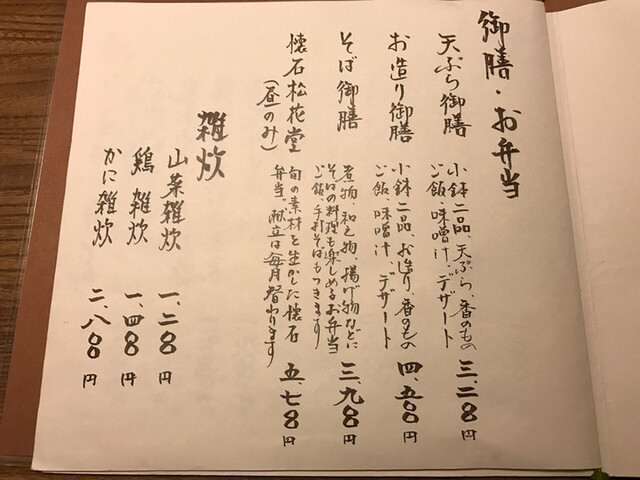 御膳・お弁当
天ぷら御膳
小鉢二品、天ぷら、香のもの
ご飯、味噌汁、デザート
三、二〇〇円
お造り御膳
小鉢二品、お造り、香のもの
ご飯、味噌汁、デザート
四、五〇〇円
そば御膳
煮物、和え物、揚げ物などに
そばの料理も楽しめるお弁当
ご飯、手打そばもつきます
三、九〇〇円
懐石松花堂
(昼のみ)
旬の素材を生かした懐石
弁当、献立は毎月替わります
五、七〇〇円
雑炊
山菜雑炊 一、二〇〇円
鶏雑炊 一、四〇〇円
かに雑炊 二、八〇〇円